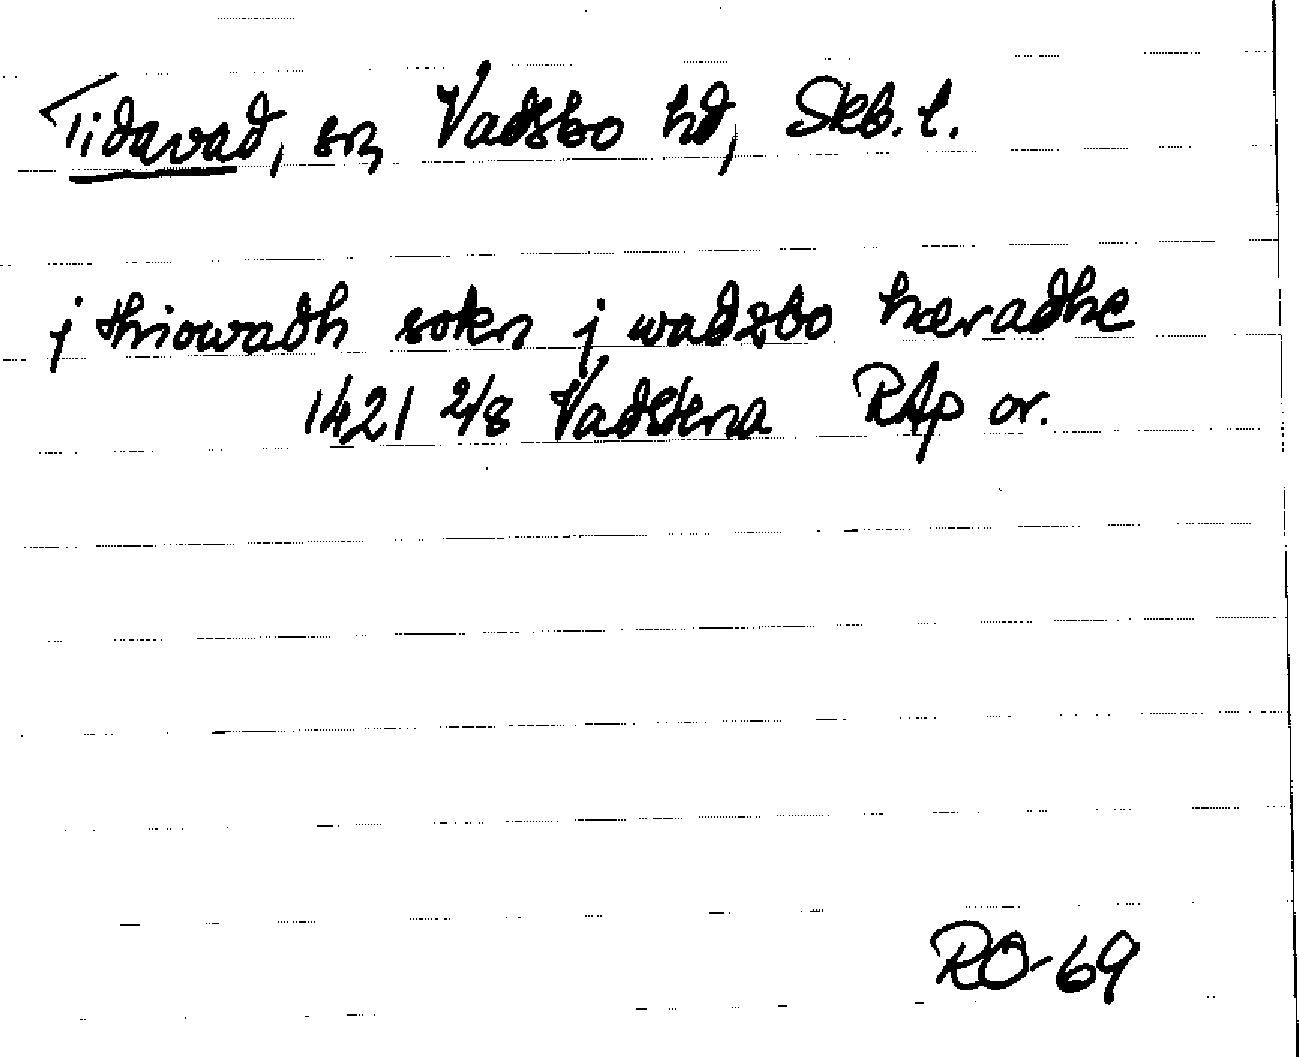 Tidavad, sn, Vadsbo hd, Skb. l.
j thiowadh sokn j wadzbo hæradhe
1421 2/8 Vadstena RAp or.
RO-69